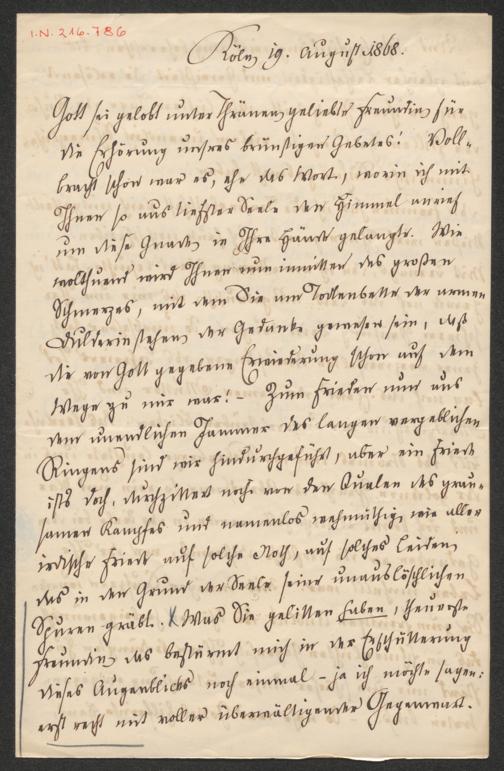 I.N. 216.786
Köln 19. August 1868.
Gott sei gelobt unter Thränen, geliebte Freundin, für
die Erhörung unsres brünstigen Gebetes! Voll-
bracht schon war es, ehe das Wort, worin ich mit
Ihnen so aus tiefster Seele den Himmel anrief
um diese Gnade, in Ihre Hände gelangte. Wie
wolthuend wird Ihnen nun inmitten des großen
Schmerzes, mit dem Sie am Todtenbette der armen
Dulderin stehen, der Gedanke gewesen sein, daß
die von Gott gegebene Erwiederung schon auf dem
Wege zu mir war! – Zum Frieden nun aus
dem unendlichen Jammer des langen vergeblichen
Ringens sind wir hindurchgeführt, aber ein Friede
ists doch, durchzittert noch von den Qualen des grau-
samen Kampfes und namenlos wehmüthig, wie aller
irdische Friede auf solche Noth, auf solches Leiden,
das in den Grund der Seele seine unauslöschlichen
Spuren gräbt. Was Sie gelitten haben, theuerste
Freundin, das bestürmt mich in der Erschütterung
dieses Augenblicks noch einmal – ja ich möchte sagen:
erst recht mit voller überwältigender Gegenwart.